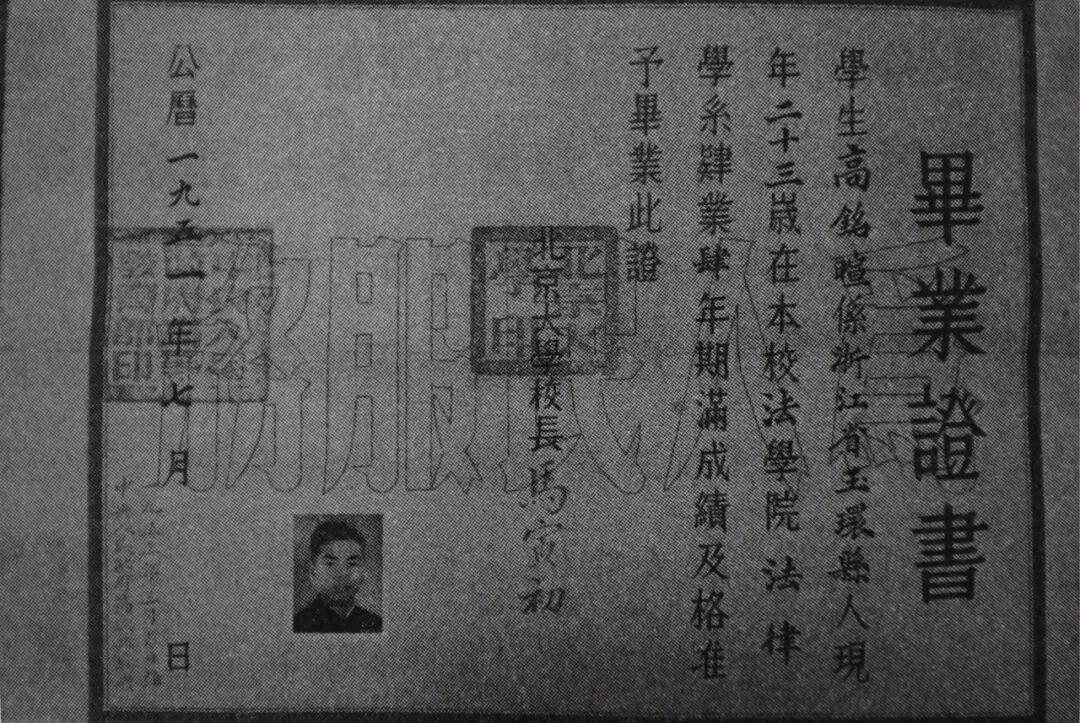 畢業證書
學生高銘暄係浙江省玉環縣人現
年二十三嵗在本校法學院法律
學系肄業肆年期滿成績及格准
予畢業此證
北京大學校長馬寅初
北京大
學印
公曆一九五一年七月 日
教育部印
為人民服務